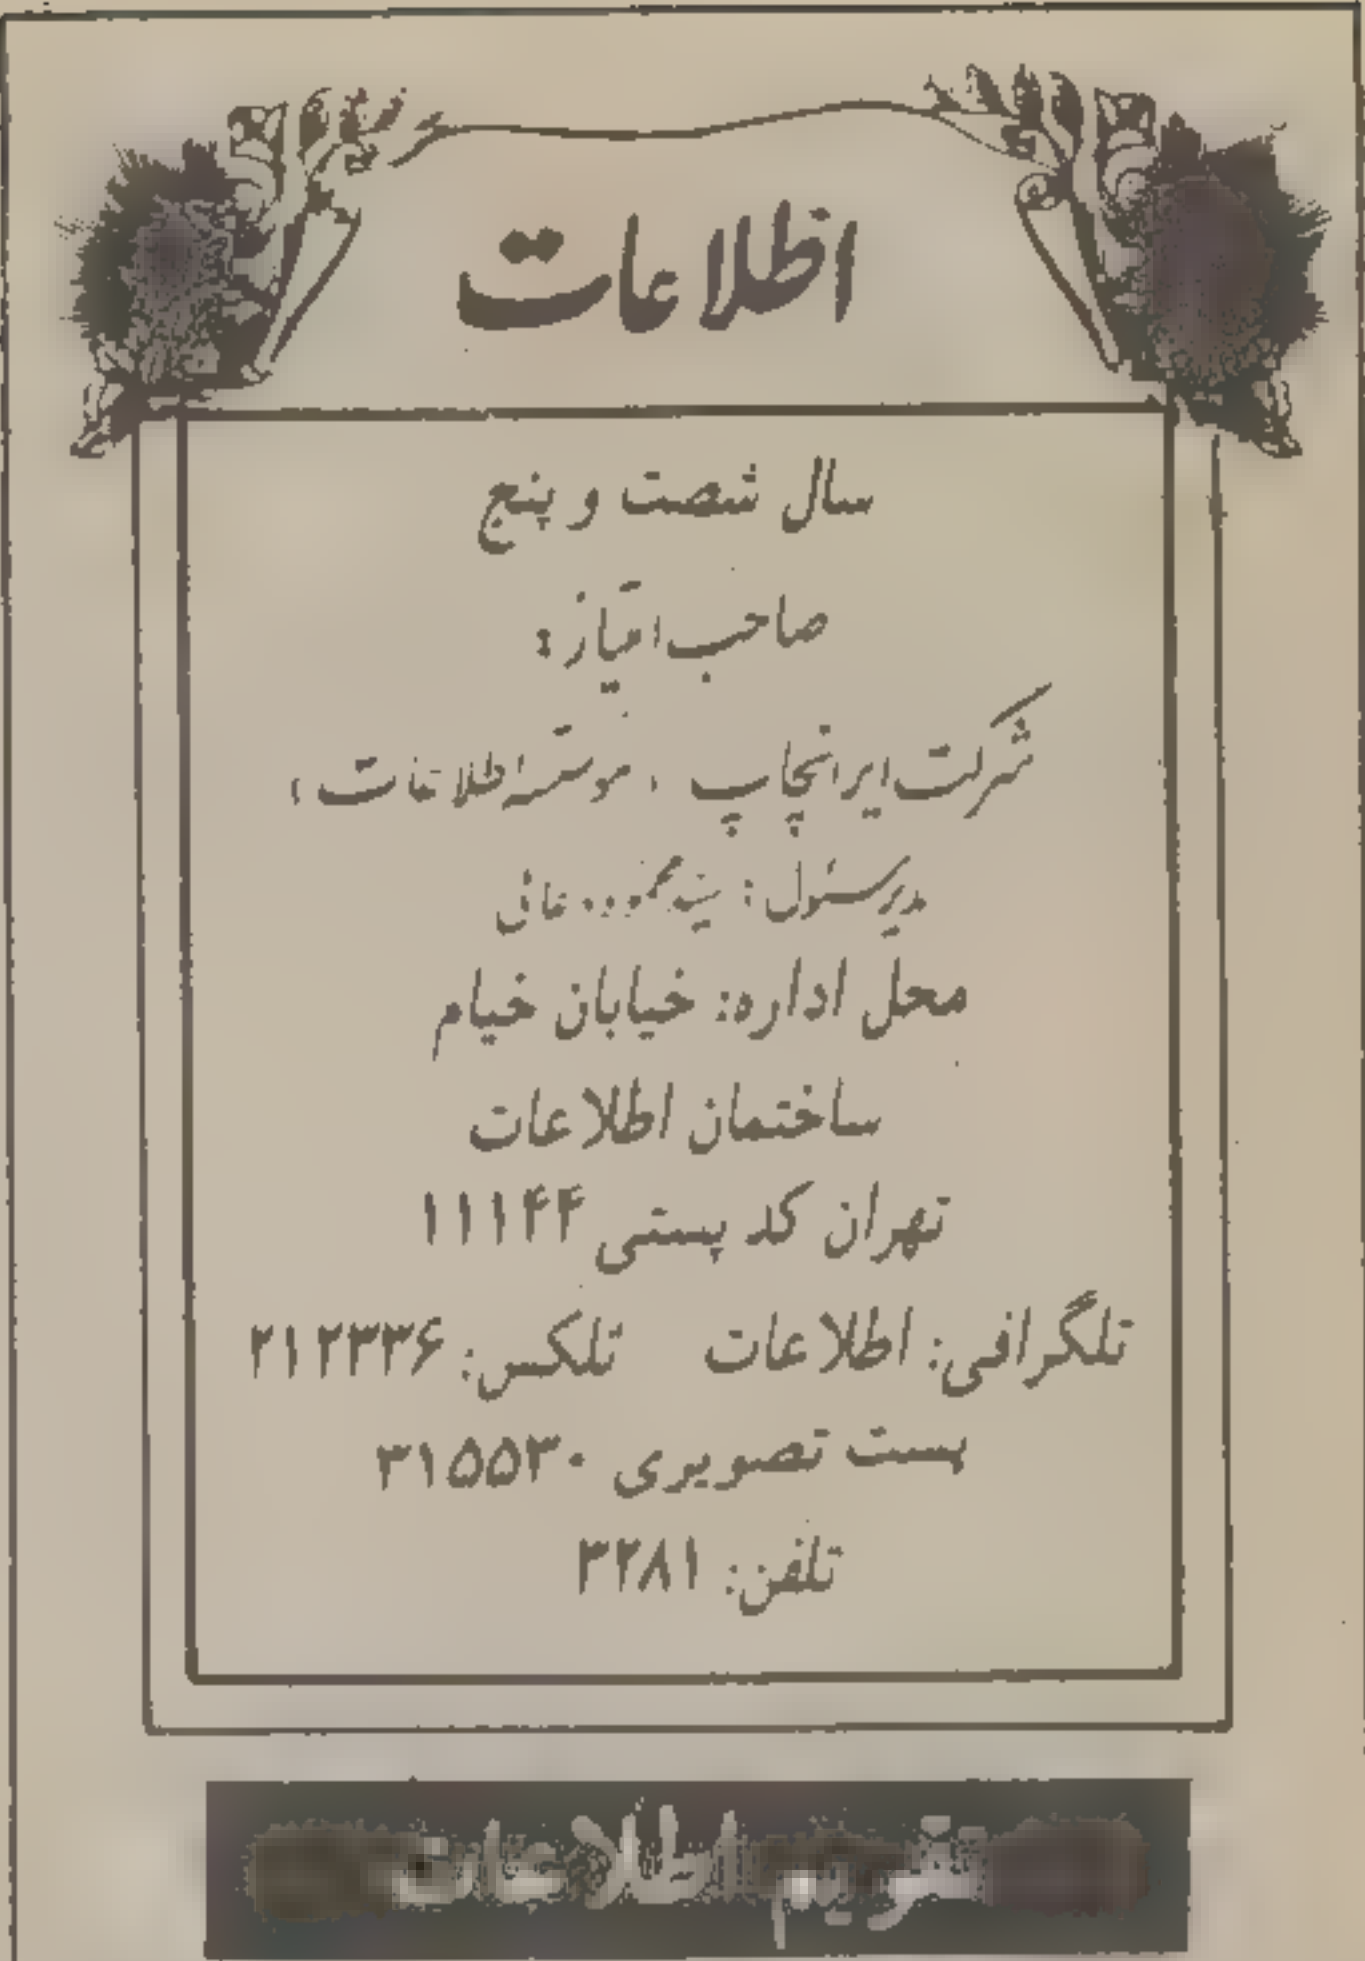 اطلاعات
سال شصت و پنج
صاحب امتیاز:
شرکت ایرانچاپ «موسسه اطلاعات»
مدیر مسئول: سید محمود دعائی
محل اداره: خیابان خیام
ساختمان اطلاعات
تهران کد پستی ۱۱۱۴۴
تلگرافی: اطلاعات تلکس: ۲۱۲۳۳۶
پست تصویری ۳۱۵۵۳۰
تلفن: ۳۲۸۱
تقویم اطلاعات